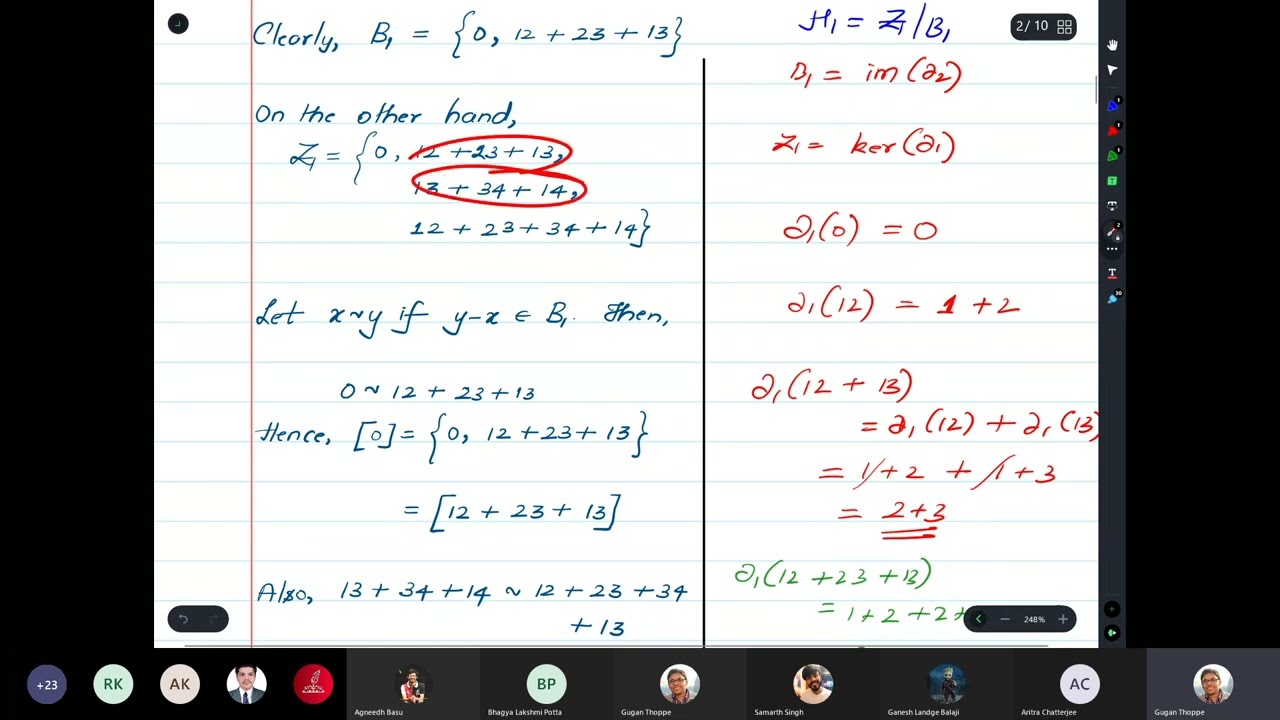 Clearly, B₁ = {0, 12 + 23 + 13}
On the other hand,
Z₁ = {0, 12 + 23 + 13,
13 + 34 + 14,
12 + 23 + 34 + 14}
Let x~y if y-x ∈ B₁. Then,
0 ~ 12 + 23 + 13
Hence, [0] = {0, 12 + 23 + 13}
= [12 + 23 + 13]
Also, 13 + 34 + 14 ~ 12 + 23 + 34
+ 13
H₁ = Z₁/B₁
B₁ = im(∂₂)
Z₁ = ker(∂₁)
∂₁(0) = 0
∂₁(12) = 1 + 2
∂₁(12 + 13)
= ∂₁(12) + ∂₁(13)
= 1 + 2 + 1 + 3
= 2+3
∂₁(12 + 23 + 13)
= 1 + 2 + 2 +
2 / 10
248%
+23
RK
AK
BP
AC
Agneedh Basu
Bhagya Lakshmi Potta
Gugan Thoppe
Samarth Singh
Ganesh Landge Balaji
Aritra Chatterjee
Gugan Thoppe